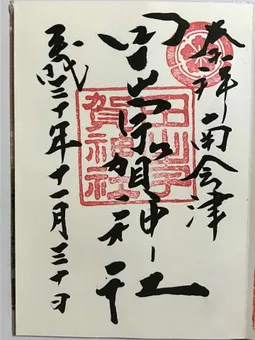 奉拝 南会津
田出宇賀神社
平成三十年十一月三十日
田出宇
賀神社